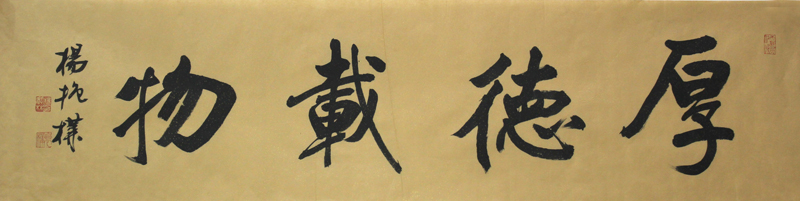 厚德載物
楊抱樸